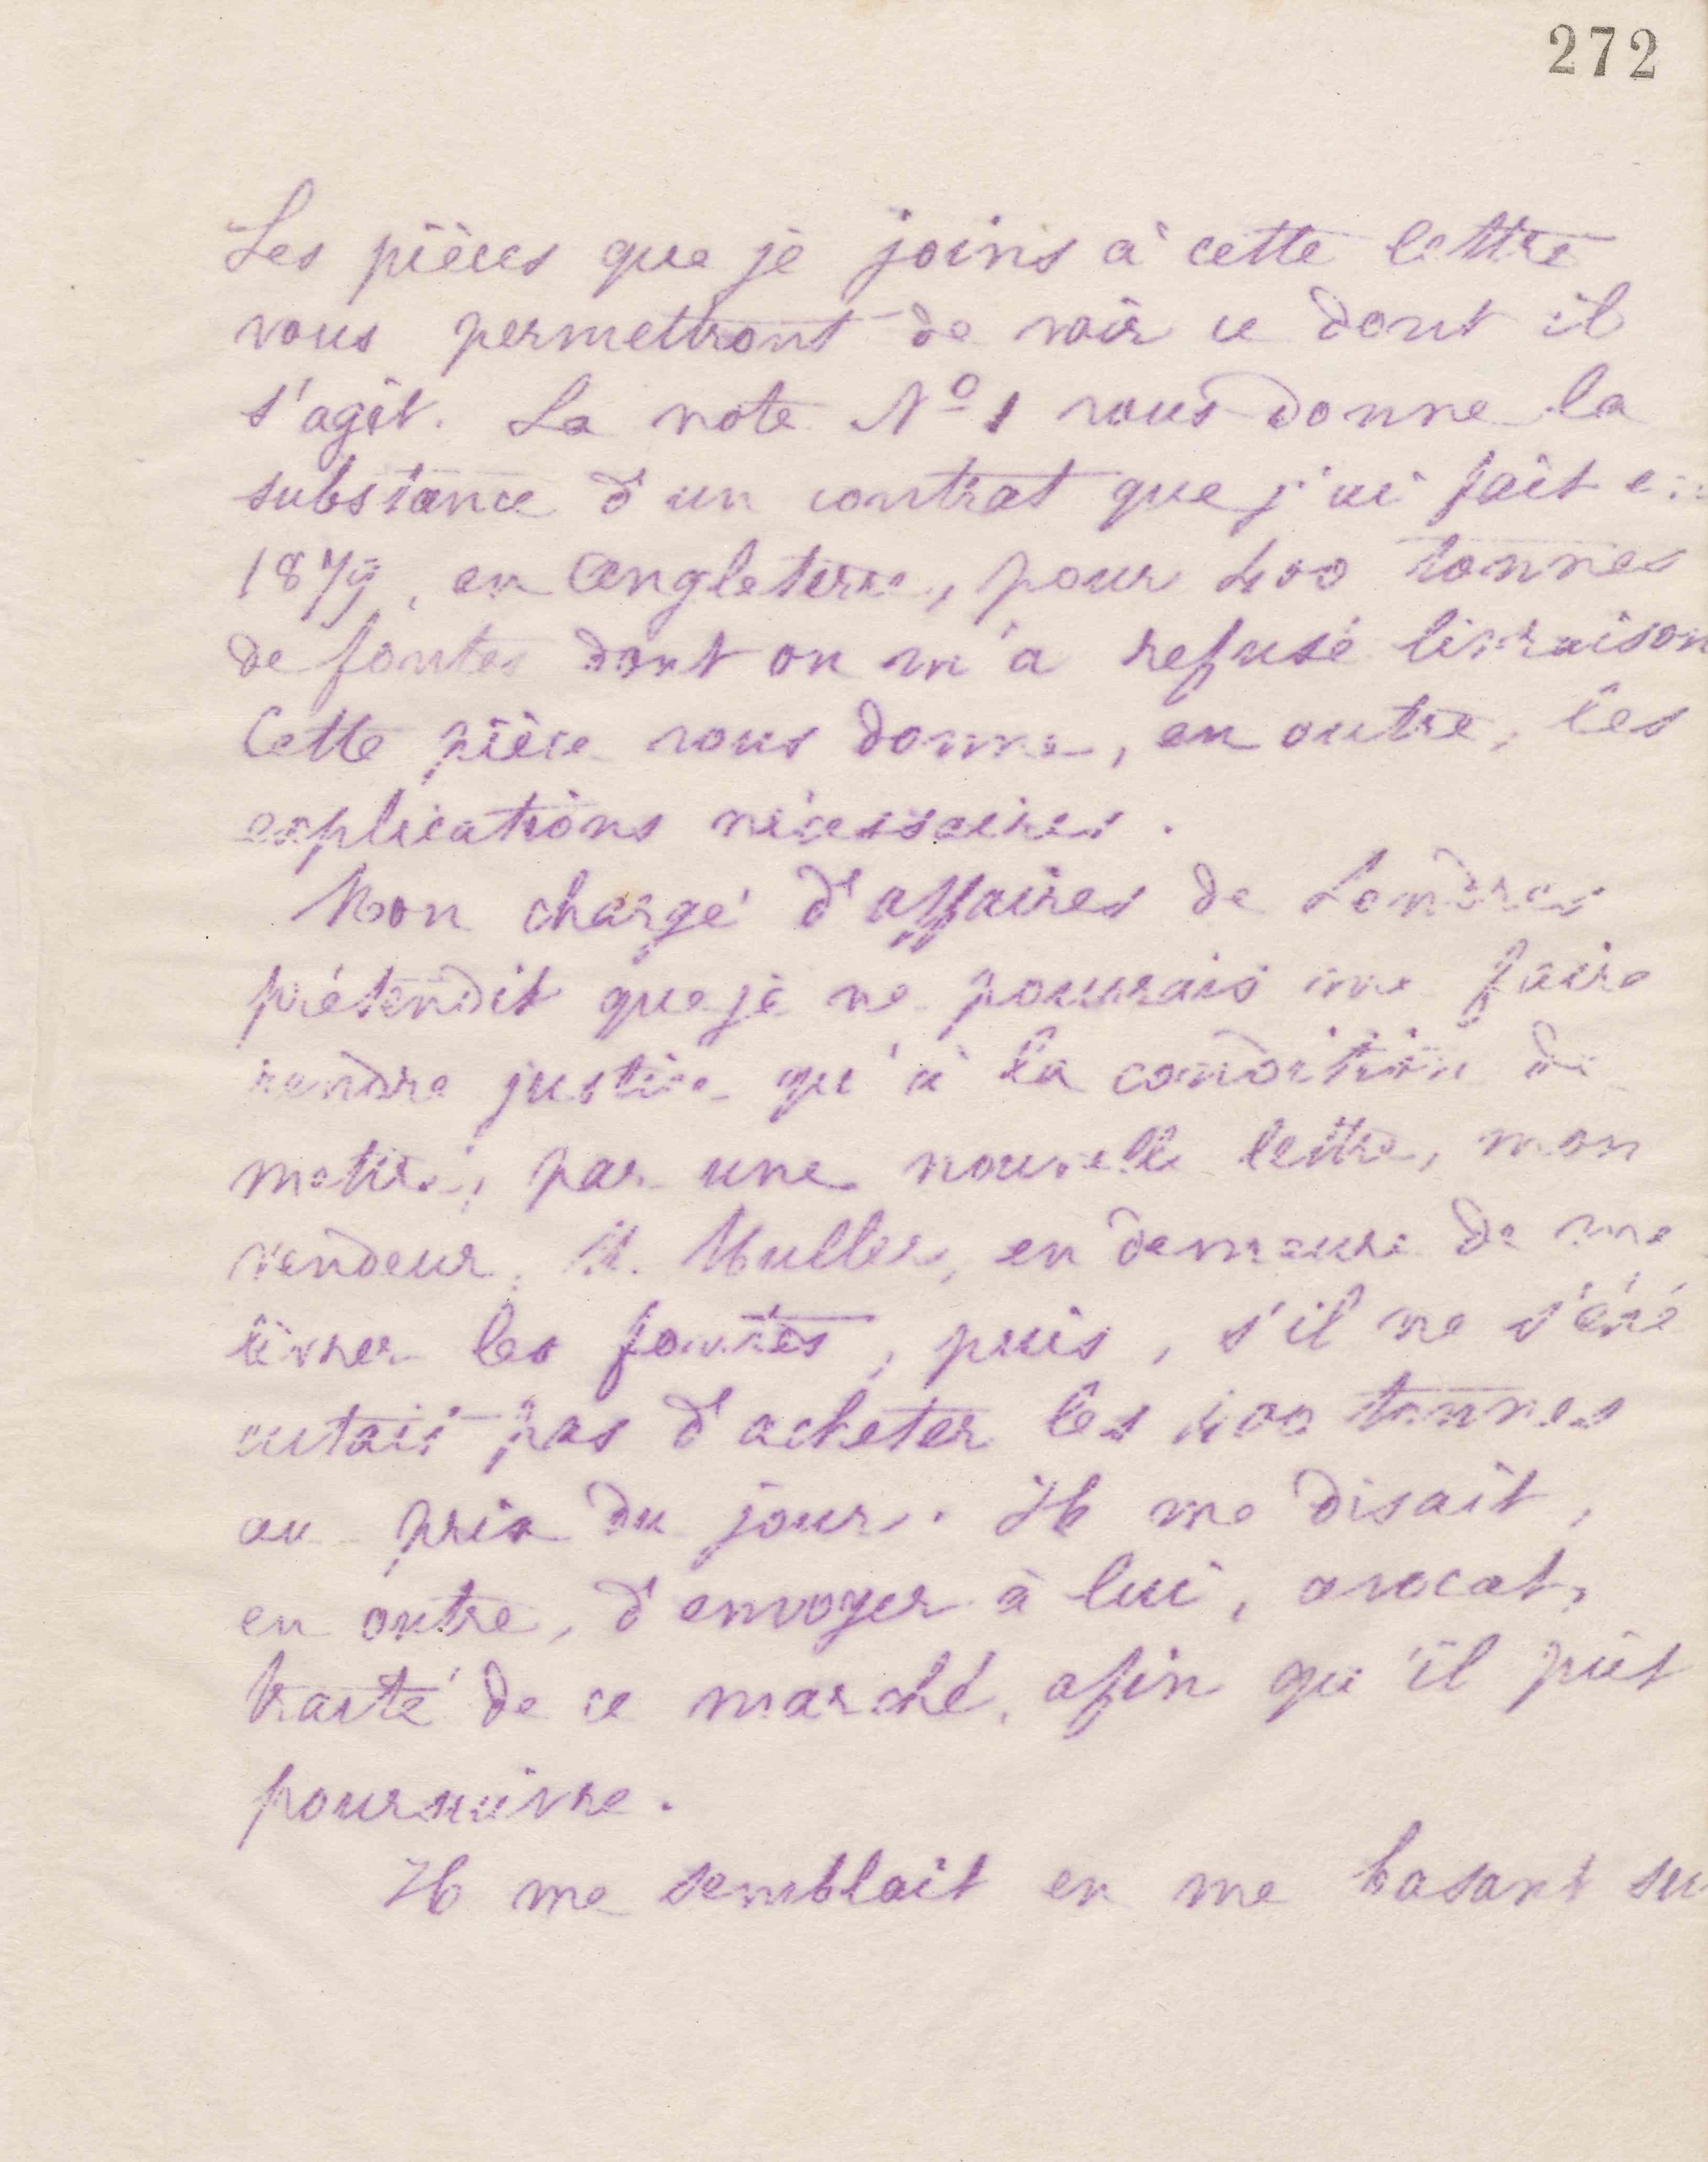 272
Les pièces que je joins à cette lettre
vous permettront de voir ce dont il
s'agit. La note Nº 1 vous donne la
substance d'un contrat que j'ai fait en
1879, en Angleterre, pour 400 tonnes
de fontes dont on m'a refusé livraison
Cette pièce vous donne, en outre, les
explications nécessaires.
Mon chargé d'affaires de Londres
prétendit que je ne pourrais me faire
rendre justice qu'à la condition de
mettre, par une nouvelle lettre, mon
vendeur, M. Muller, en demeure de me
livrer les fontes, puis, s'il ne s'exé
cutait pas d'acheter les 400 tonnes
au prix du jour. Il me disait,
en outre, d'envoyer à lui, avocat,
traité de ce marché, afin qu'il pût
poursuivre.
Il me semblait en me basant su